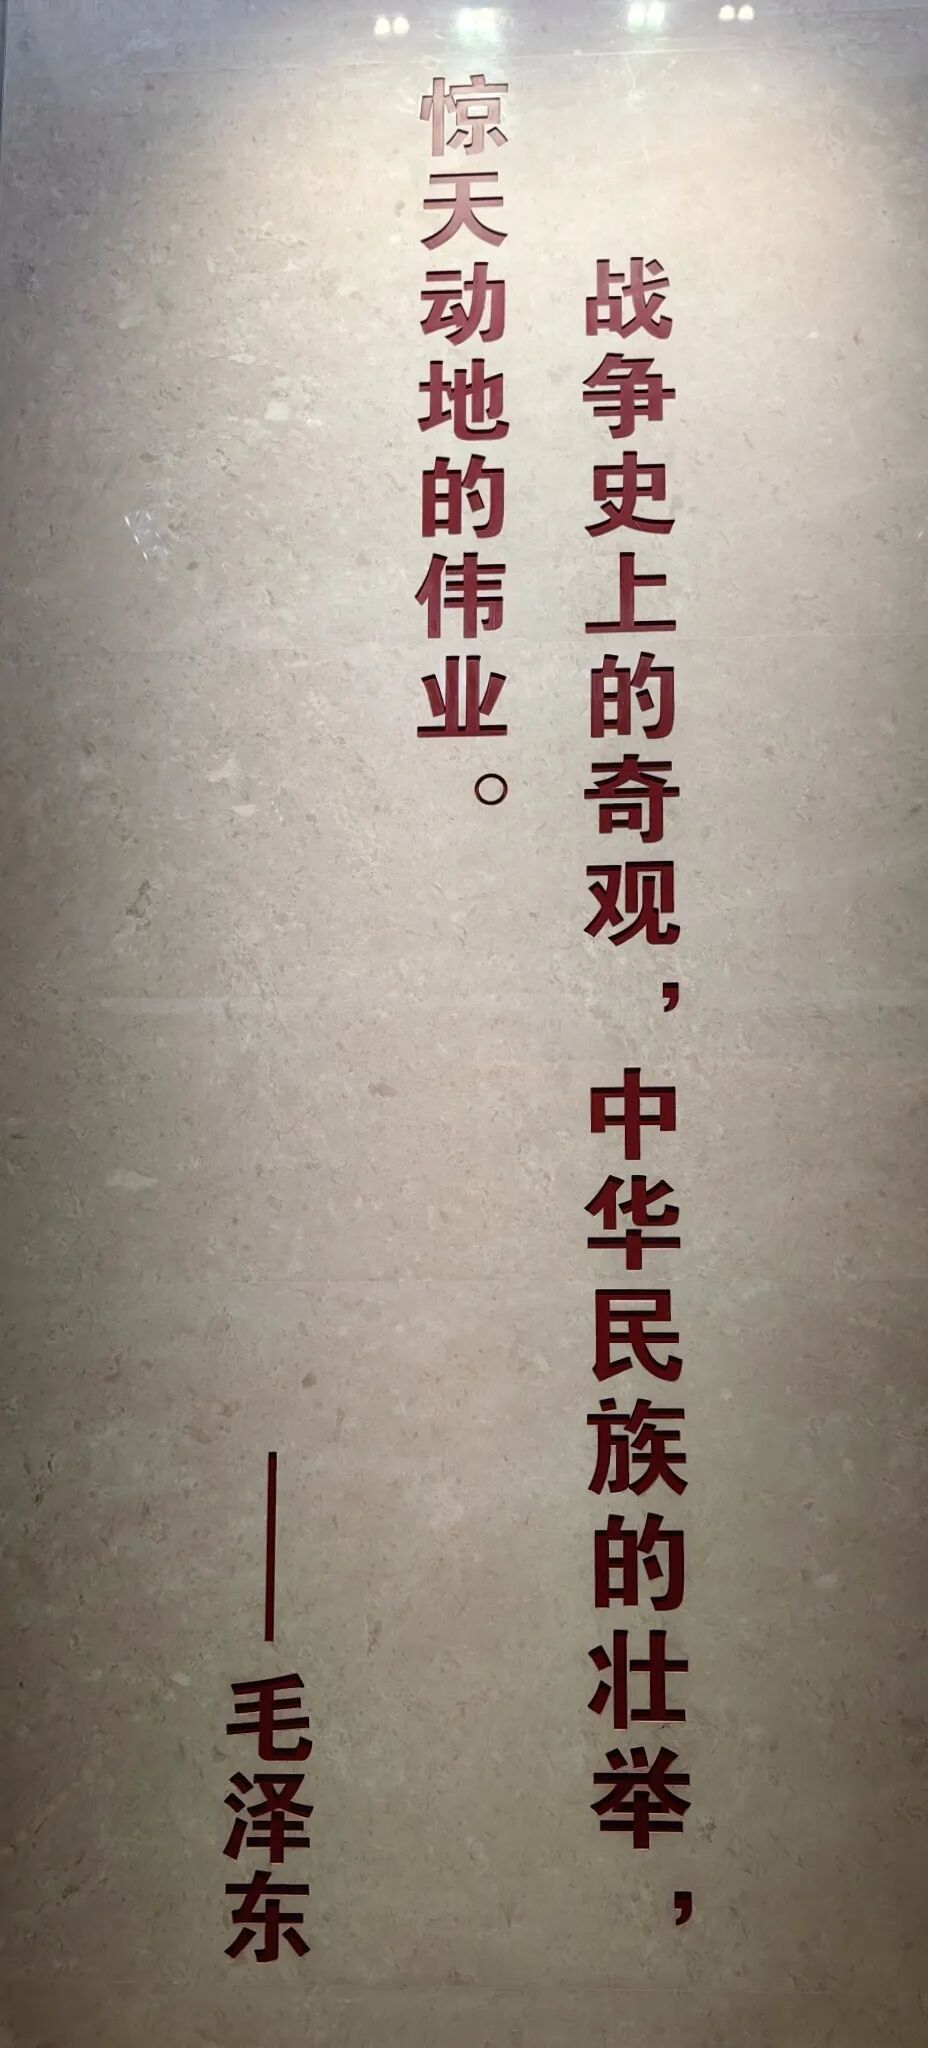 战争史上的奇观，中华民族的壮举，
惊天动地的伟业。
——毛泽东